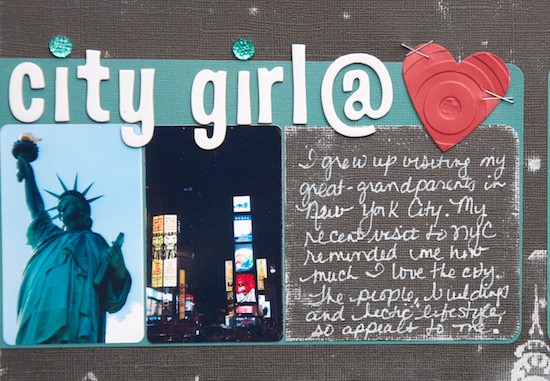 city girl @
I grew up visiting my
great-grandparents in
New York City. My
recent visit to NYC
reminded me how
much I love the city.
The people, buildings
and hectic lifestyle,
so appeals to me.